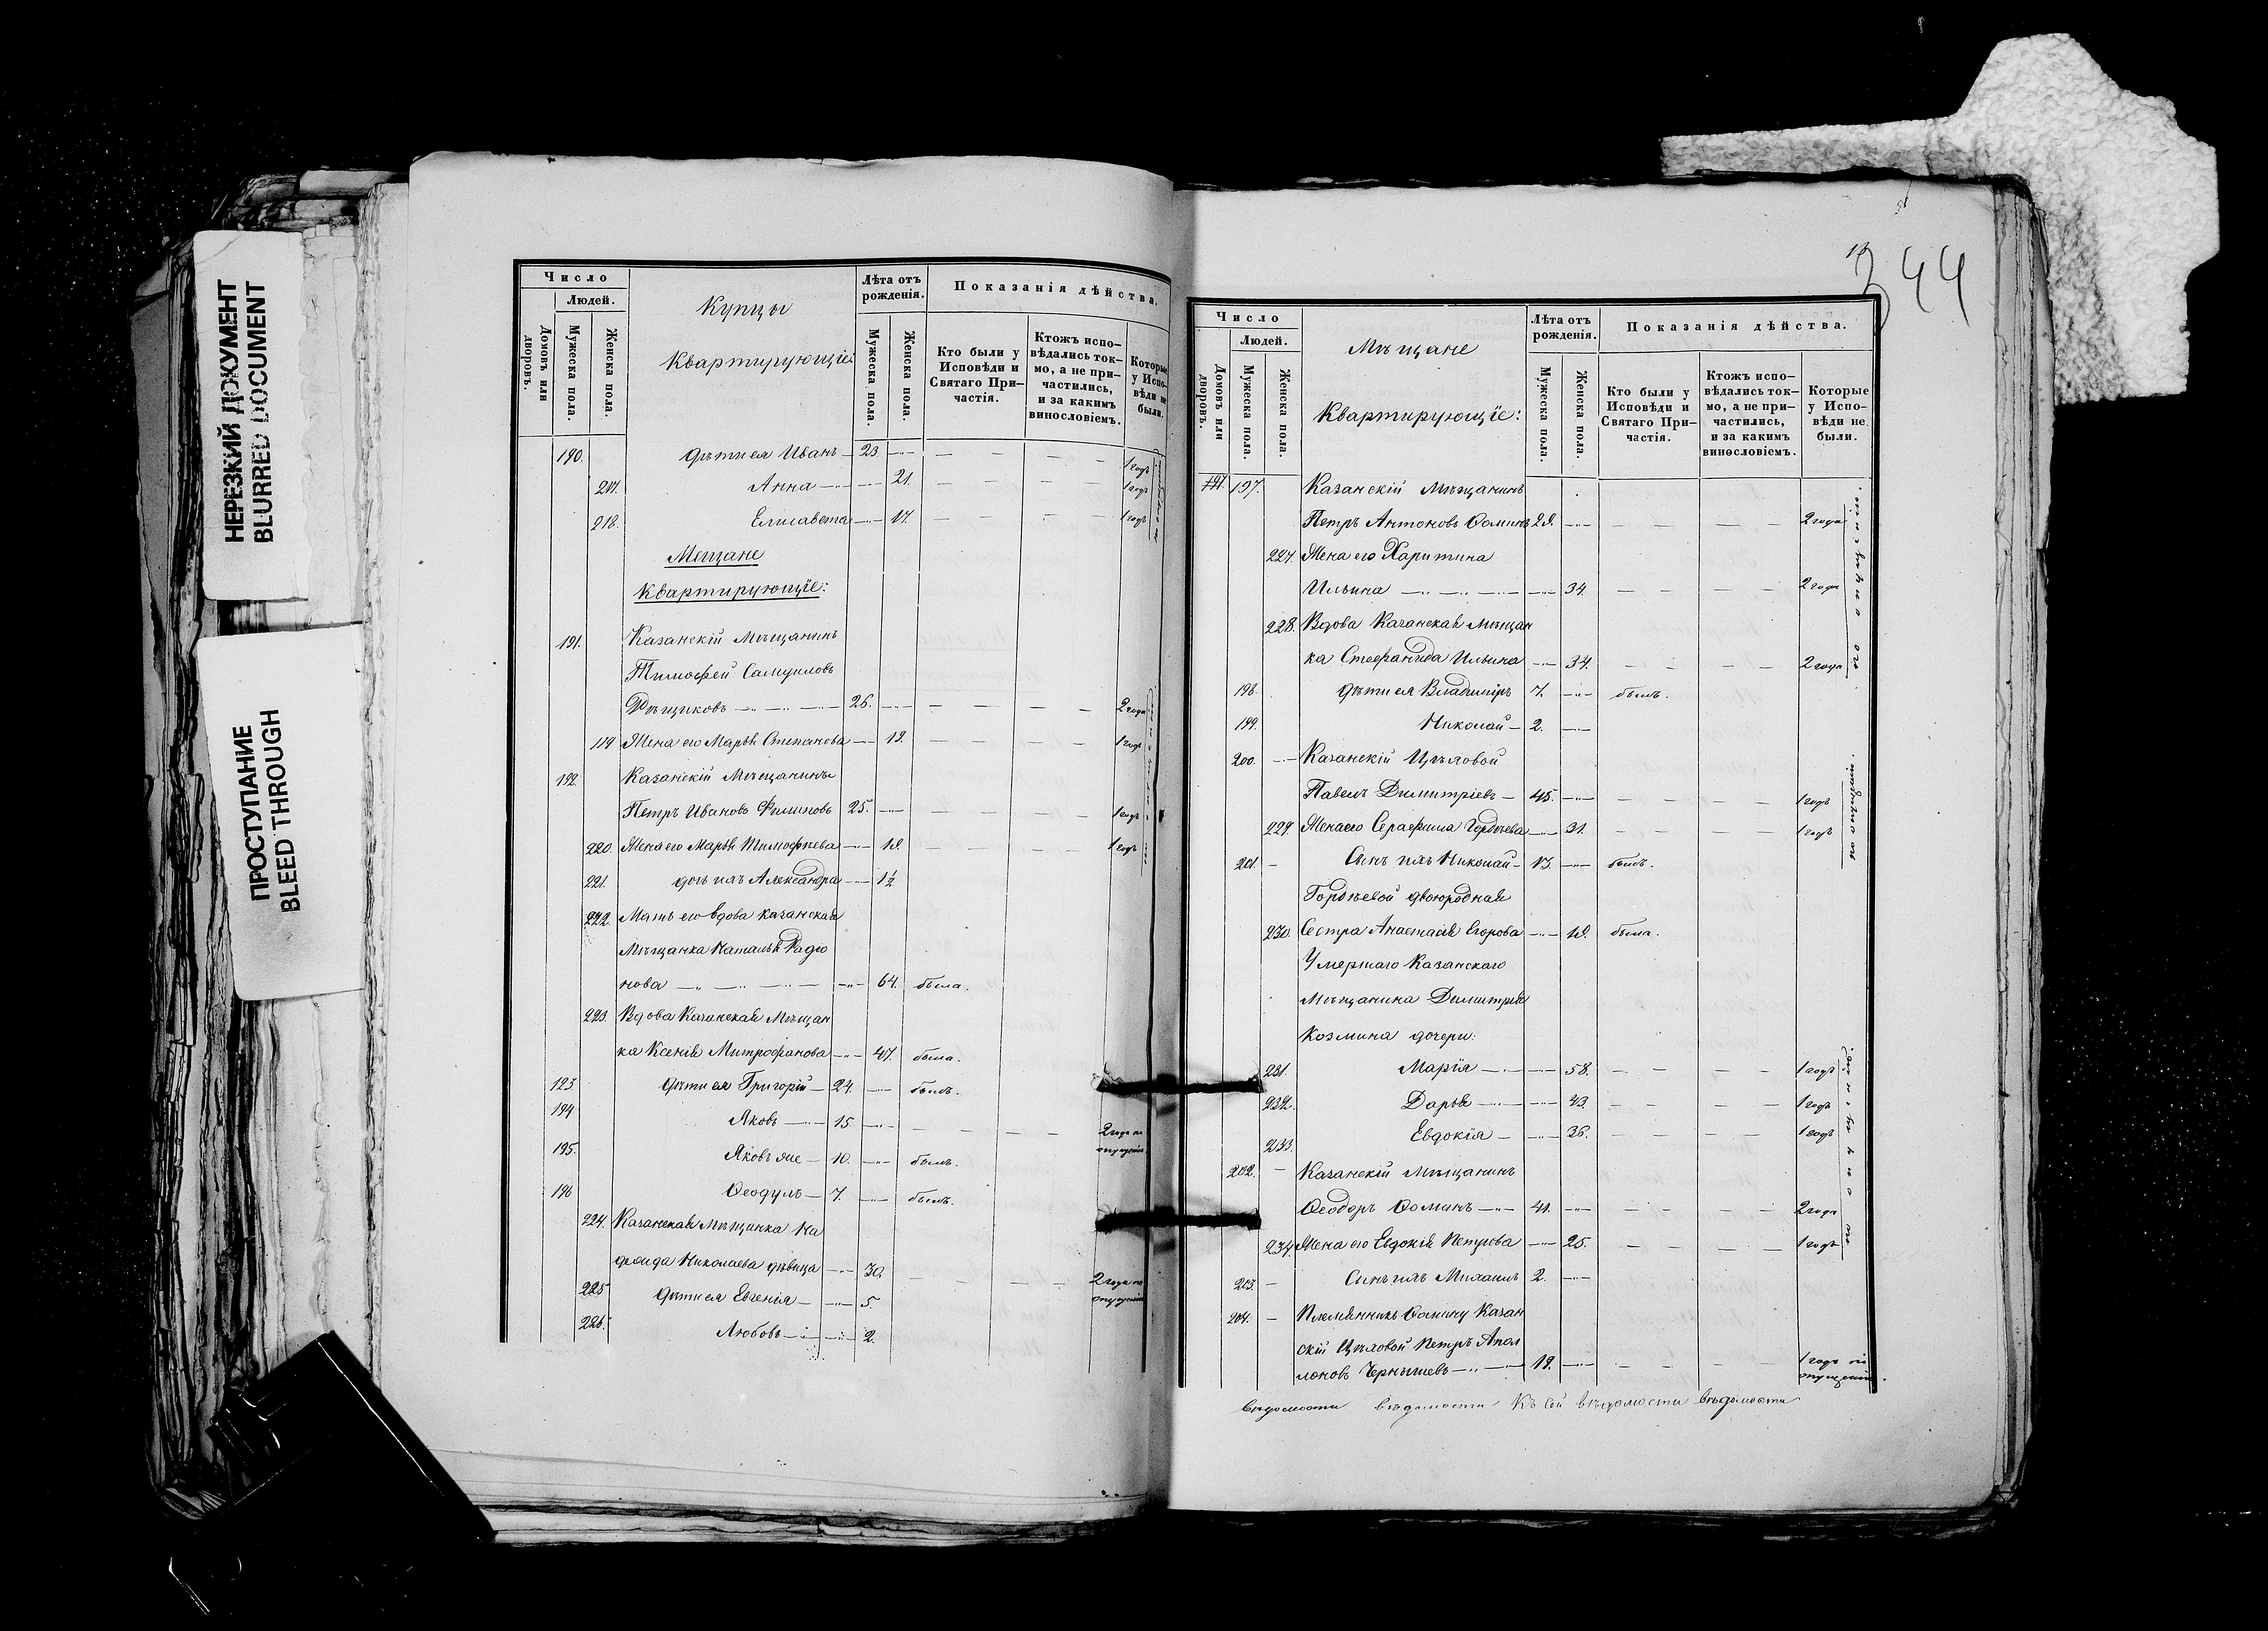 НЕРЕЗКИЙ ДОКУМЕНТ
BLURRED DOCUMENT
ПРОСТУПАНИЕ
BLEED THROUGH
Число
Людей.
Домовъ или дворовъ.
Мужеска пола.
Женска пола.
Купцы
Квартирующіе:
Лѣта отъ рожденія.
Мужеска пола.
Женска пола.
Показанія дѣйства.
Кто были у Исповѣди и Святаго При-частія.
Ктожъ испо-вѣдались ток-мо, а не при-частились, и за какимъ винословіемъ.
Которые у Испо-вѣди не были.
190. Дѣти ея Иванъ — 23. 1 годъ
217. Анна — 21. 1 годъ
218. Елисавета — 17. 1 годъ
Мещане
Квартирующіе:
191. Казанскій Мѣщанинъ
Тимофей Самуиловъ
Рѣщиковъ — 26. 2 года
119 Жена его Марья Степанова — 19. 1 годъ
192. Казанскій Мѣщанинъ
Петръ Ивановъ Филиповъ 25. 1 годъ
220. Жена его Марья Тимофѣева — 19. 1 годъ
221. дочь ихъ Александра — 1½
222. Мать его вдова казанская
Мѣщанка Наталья Радіо
нова — 64. была.
223 Вдова Казанская Мѣщан
ка Ксенія Митрофанова — 47. была.
123 Дѣти ея Григорій — 24. былъ.
194 Яковъ — 15 2 года по опущенію
195. Яковъ же — 10. былъ.
196 Ѳеодулъ — 7. былъ.
224. Казанская Мѣщанка На
Николаева дѣвица — 30. 2 года по опущенію
225 Дѣти ея Евгенія — 5.
226. Любовь — 2.
344
Число
Людей.
Домовъ или дворовъ.
Мужеска пола.
Женска пола.
Мѣщане
Квартирующіе:
Лѣта отъ рожденія.
Мужеска пола.
Женска пола.
Показанія дѣйства.
Кто были у Исповѣди и Святаго При-частія.
Ктожъ испо-вѣдались ток-мо, а не при-частились, и за какимъ винословіемъ.
Которые у Испо-вѣди не были.
197. Казанскій Мѣщанинъ
Петръ Антоновъ Ѳоминъ 29. 2 года
227. Жена его Харитина
Ильина — 34. 2 года
228. Вдова Казанская Мѣщан
ка Стефанида Ильина — 34. 2 года
по опущенію.
198. Дѣти ея Владиміръ 7. былъ.
199. Николай — 2.
200. Казанскій Цѣховой
Павелъ Димитріевъ — 45. 1 годъ
229. Жена его Серафима Гордѣева — 31. 1 годъ
по опущенію.
201 — Сынъ ихъ Николай — 13. былъ.
Гордѣевой двоюродная
230. Сестра Анастасія Егорова — 19. была.
Умершаго Казанскаго
Мѣщанина Димитрія
Козмина дочери:
231. Марія — 58. 1 годъ
232. Дарья — 43. 1 годъ
233. Евдокія — 36. 1 годъ
202. — Казанскій Мѣщанинъ
Ѳеодоръ Ѳоминъ — 41. 2 года
234. Жена его Евдокія Петрова — 25. 1 годъ
по опущенію.
203. — Сынъ ихъ Михаилъ 2.
204. — Племянникъ Ѳомину Казан
скій Цѣховой Петръ Апол
лоновъ Чернышевъ — 19. 1 годъ по опущенію.
вѣдомости вѣдомости Къ сей вѣдомости вѣдомости